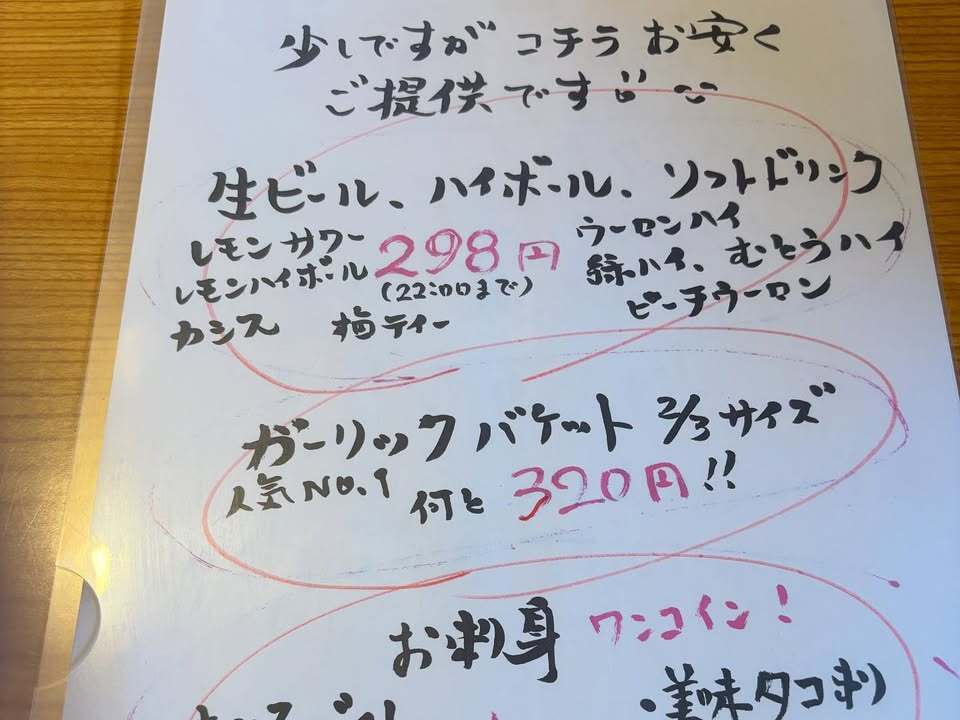 少しですが コチラ お安く
ご提供です!!
生ビール、ハイボール、ソフトドリンク
レモンサワー 298円 ウーロンハイ
レモンハイボール (22:00まで) 緑ハイ、むとうハイ
カシス 梅ティー ピーチウーロン
ガーリックバケット 2/3サイズ
人気NO.1 何と 320円!!
お刺身 ワンコイン!
・美味タコ刺